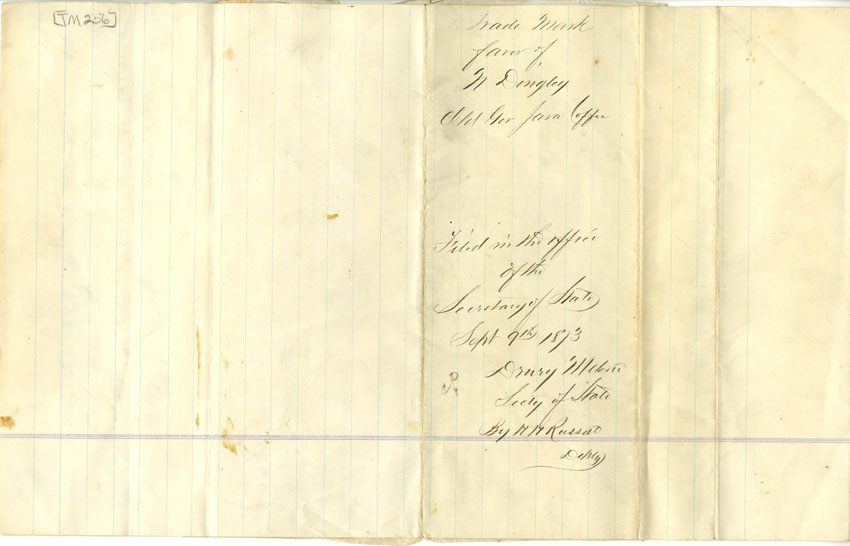 [TM 256]
Trade Mark
favor of
N Dingley
Old Gov Java Coffee
Filed in the office
of the
Secretary of State
Sept 9th 1873
Drury Melone
Secty of State
By
Depty